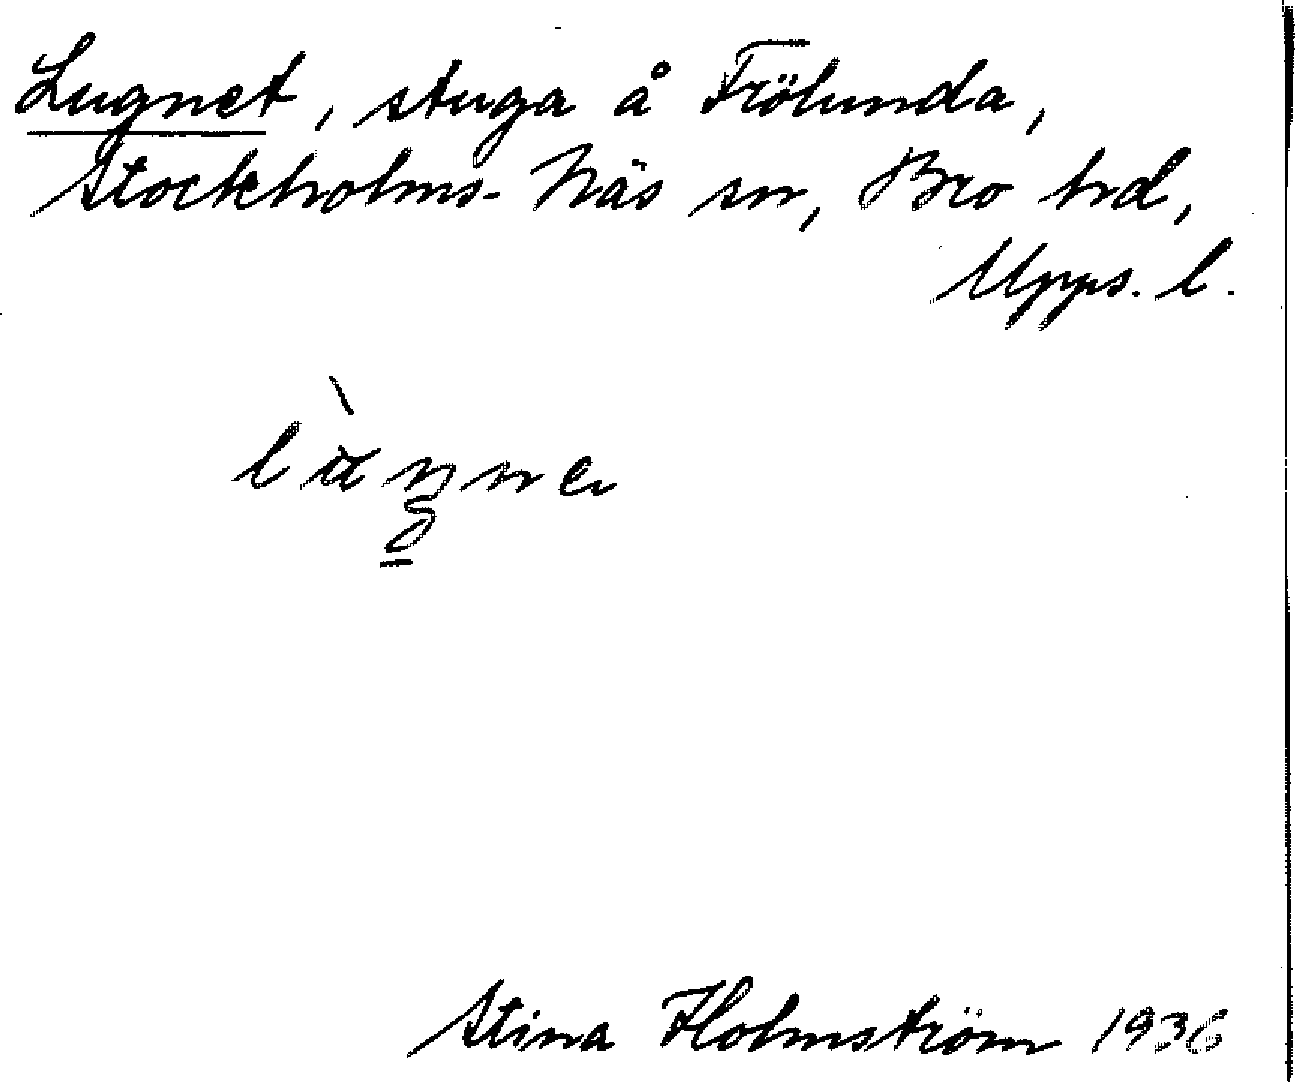 Lugnet, stuga å Frölunda,
Stockholms-Näs sn, Bro hd,
Upps. l.
Stina Holmström 1936